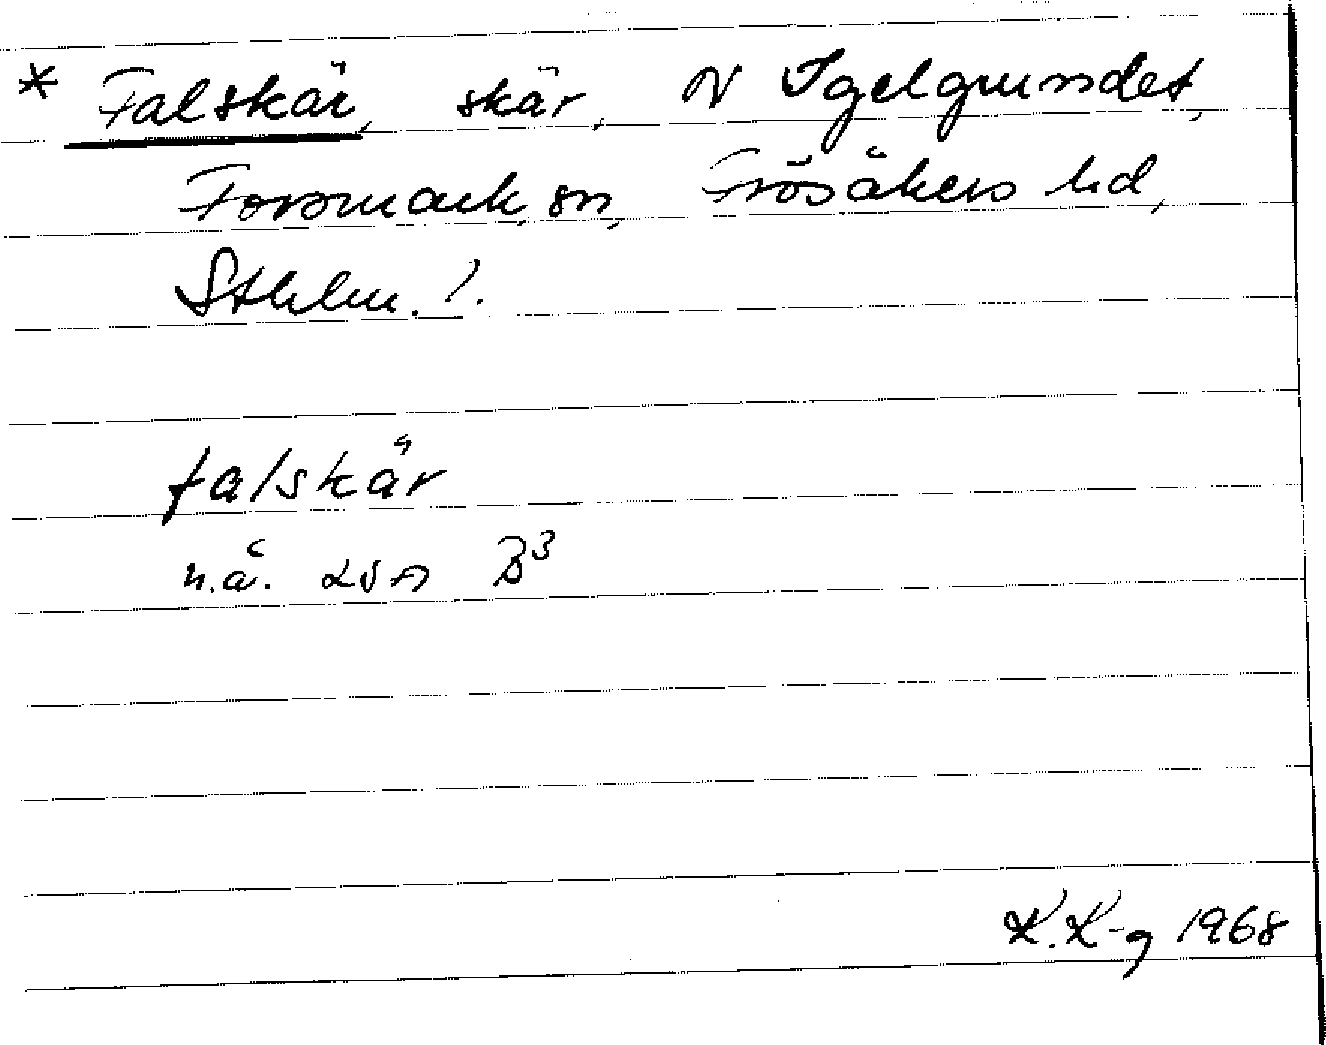 * Falskär, skär, N Igelgrundet,
Forsmark sn, Frösåkers hd,
Sthlm. l.
falskär
n.ä. LSA B³
K.K-g 1968